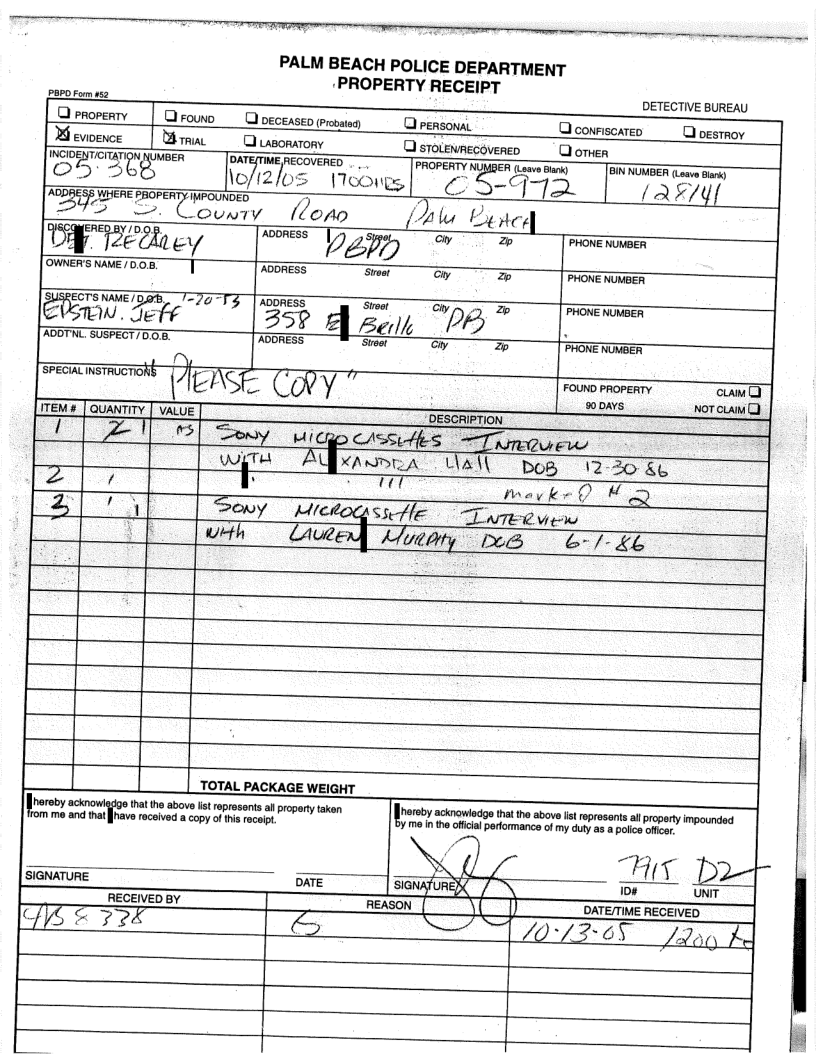 PALM BEACH POLICE DEPARTMENT
PROPERTY RECEIPT
PBPD Form #52
DETECTIVE BUREAU
PROPERTY FOUND DECEASED (Probated) PERSONAL CONFISCATED DESTROY
EVIDENCE TRIAL LABORATORY STOLEN/RECOVERED OTHER
INCIDENT/CITATION NUMBER DATE/TIME RECOVERED PROPERTY NUMBER (Leave Blank) BIN NUMBER (Leave Blank)
05-368 10/12/05 1700HRS 05-972 128141
ADDRESS WHERE PROPERTY IMPOUNDED
345 S. COUNTY ROAD PALM BEACH
DISCOVERED BY / D.O.B. ADDRESS Street City Zip PHONE NUMBER
DET. RECAREY PBPD
OWNER'S NAME / D.O.B. ADDRESS Street City Zip PHONE NUMBER
SUSPECT'S NAME / D.O.B. 1-20-53 ADDRESS Street City Zip PHONE NUMBER
EPSTEIN. JEFF 358 E Brillo PB
ADDT'NL. SUSPECT / D.O.B. ADDRESS Street City Zip PHONE NUMBER
SPECIAL INSTRUCTIONS "PLEASE COPY"
FOUND PROPERTY CLAIM
90 DAYS NOT CLAIM
ITEM # QUANTITY VALUE DESCRIPTION
1 1 SONY MICROCASSETTES INTERVIEW
WITH AL XANDRA HAll DOB 12-30-86
2 ' ' ' ' ' marked # 2
3 1 SONY MICROCASSETTE INTERVIEW
with LAUREN MURPHY DOB 6-1-86
TOTAL PACKAGE WEIGHT
hereby acknowledge that the above list represents all property taken
from me and that have received a copy of this receipt.
hereby acknowledge that the above list represents all property impounded
by me in the official performance of my duty as a police officer.
7915 D2
SIGNATURE DATE SIGNATURE ID# UNIT
RECEIVED BY REASON DATE/TIME RECEIVED
338 6 10-13-05 1200